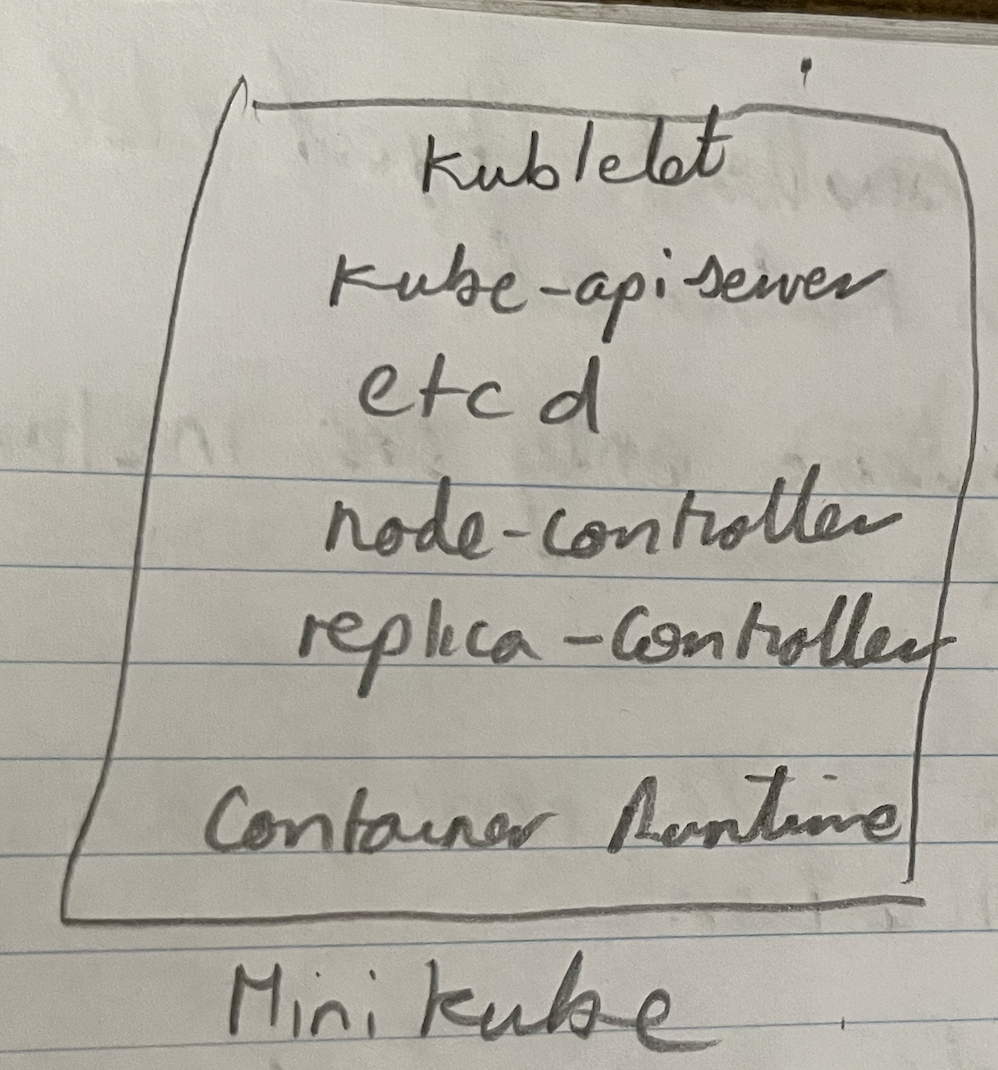 Kublelet
Kube-apiserver
etcd
node-controller
replica-Controller
Container Runtime
Minikube